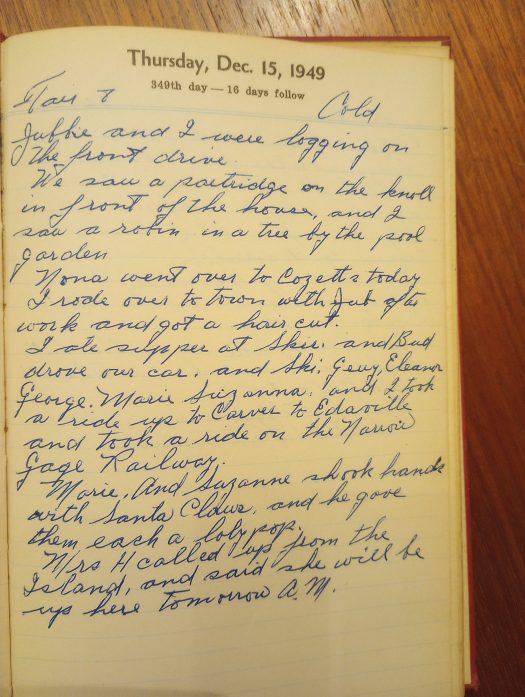 Thursday, Dec. 15, 1949
349th day — 16 days follow
Fair & Cold
Jubbie and I were logging on
the front drive.
We saw a partridge on the knoll
in front of the house, and I
saw a robin in a tree by the pool
garden
Nona went over to Cozetts today
I rode over to town with Jub after
work and got a hair cut.
I ate supper at Skis. and Bud
drove our car. and Ski, Gevy, Eleanor
George. Marie Suzanna, and I took
a ride up to Carver to Edaville
and took a ride on the Narrow
Gage Railway.
Marie. And Suzanne shook hands
with Santa Claus, and he gave
them each a loly pop.
Mrs H called up from the
Island, and said she will be
up here tomorrow A.M.